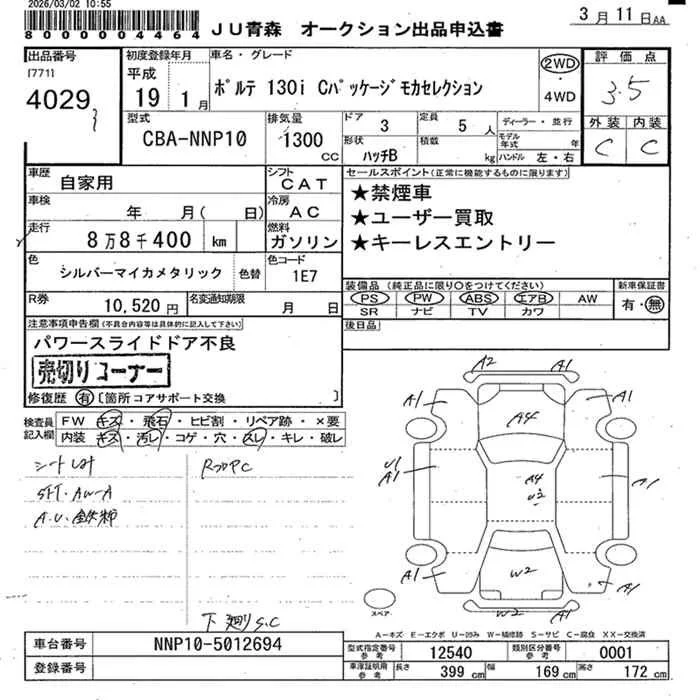 2026/03/02 10:55
800000004464
JU青森 オークション出品申込書
3月11日AA
出品番号
[771]
4029
初度登録年月
平成
19 1月
車名・グレード
ポルテ 130i Cパッケージモカセレクション
2WD
・
4WD
評価点
3.5
外装 内装
C C
型式
CBA-NNP10
排気量
1300
CC
ドア 3
形状 ハッチB
定員 5 人
積載 kg
ディーラー・並行
モデル年式 年
ハンドル 左・右
車歴 自家用
シフト CAT
車検 年 月( 日)
冷房 AC
走行 8万8千400 km
燃料 ガソリン
色 シルバーマイカメタリック 色替
色コード 1E7
R券 10,520円
名変通知期限 月 日
セールスポイント(正常に機能するものに限ります)
★禁煙車
★ユーザー買取
★キーレスエントリー
装備品(純正品に限り○をつけてください)
PS PW ABS エアB AW
SR ナビ TV カワ
新車保証書
有・無
後日品
注意事項申告欄(不具合内容等は具体的に記入して下さい)
パワースライドドア不良
売切りコーナー
修復歴 有 [箇所 コアサポート交換 ]
検査員記入欄
FW キズ・飛石・ヒビ割・リペア跡・×要
内装 キズ・汚レ・コゲ・穴・スレ・キレ・破レ
A2 A1
A1 A4 A1
U1
A1
A4
U2
A1
A1 W2 A1
W2 A1
スペア
下廻りS.C
A-キズ E-エクボ U-凹み W-補修跡 S-サビ C-腐食 XX-交換済
車台番号 NNP10-5012694
登録番号
型式指定番号 参考 12540
類別区分番号 参考 0001
車庫証明用 参考 長さ 399 cm 幅 169 cm 高さ 172 cm